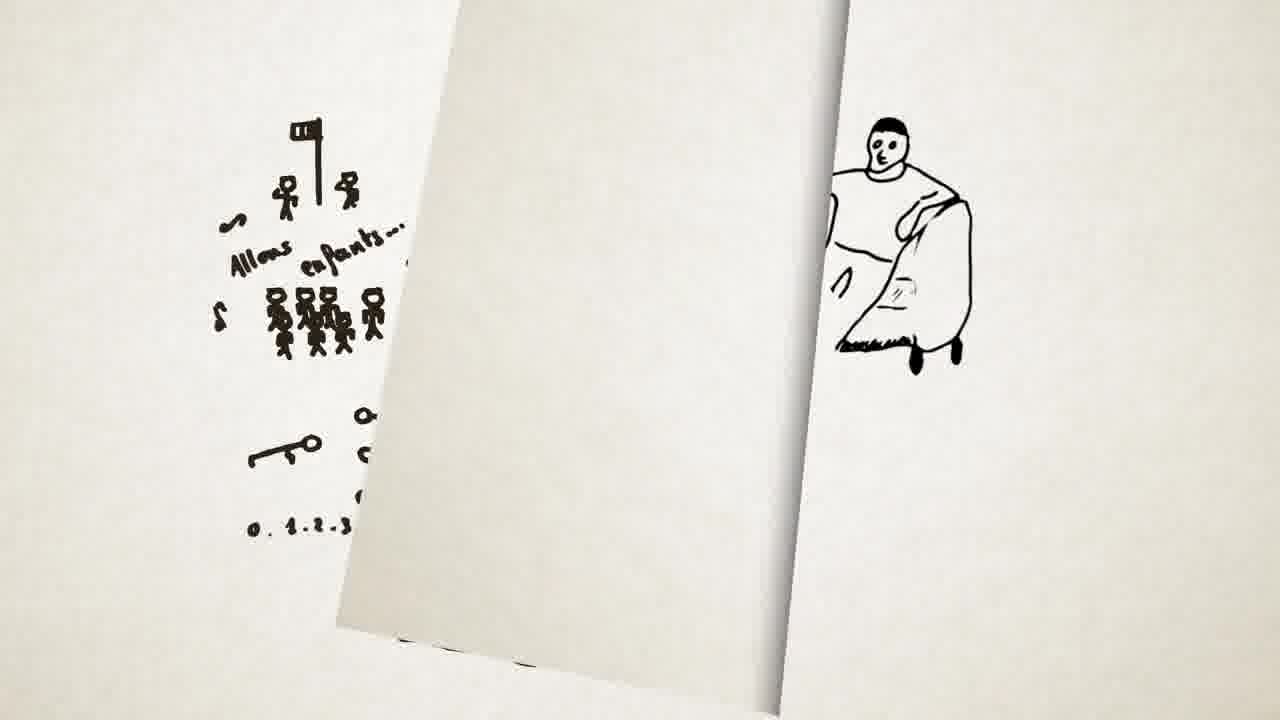 Allons enfants...
0.1.2.3